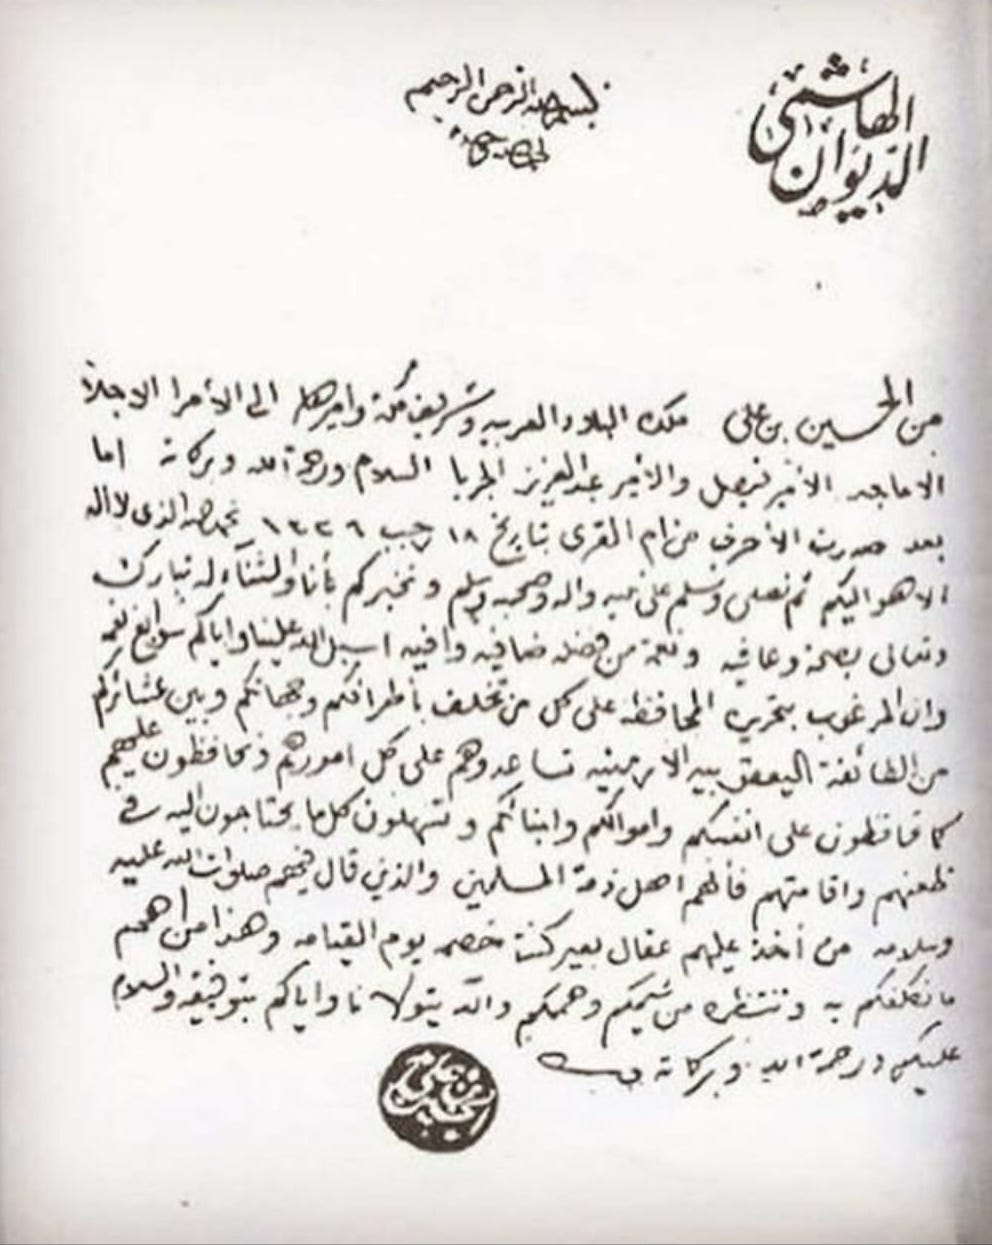 الديوان الهاشمي
بسم الله الرحمن الرحيم
الحمد لله وحده
من الحسين بن علي ملك البلاد العربيه وشريف مكة واميرها الى الأمرا الاجلاء
الاماجد الأمير فيصل والأمير عبد العزيز الجربا السلام ورحمة الله وبركاته اما
بعد صدرت الأحرف من ام القرى بتاريخ ١٨ رجب ١٣٣٦ نحمد الله الذي لا اله
الا هو اليكم ثم نصلي ونسلم على نبيه واله وصحبه وسلم ونخبركم بأنا والثناء له تبارك
وتعالى بصحة وعافيه ونعمة من فضله ضافيه وافيه اسبل الله علينا واياكم سوابغ نعمه
وان المرغوب بتحريره المحافظه على كل من تخلف بأطرافكم وجهاتكم وبين عشائركم
من الطائفة اليعقوبيه الارمنيه تساعدوهم على كل امورهم وتحافظون عليهم
كما تحافظون على انفسكم واموالكم وابنائكم وتسهلون كل ما يحتاجون اليه في
ظعنهم واقامتهم فأنهم اهل ذمة المسلمين والذي قال فيهم صلوات الله عليه
وسلامه من أخذ عليهم عقال بعير كنت خصمه يوم القيامه وهذا من اهم
ما نكلفكم به وننتظره من شيمكم وهممكم والله يتولانا واياكم بتوفيقه والسلام
عليكم ورحمة الله وبركاته